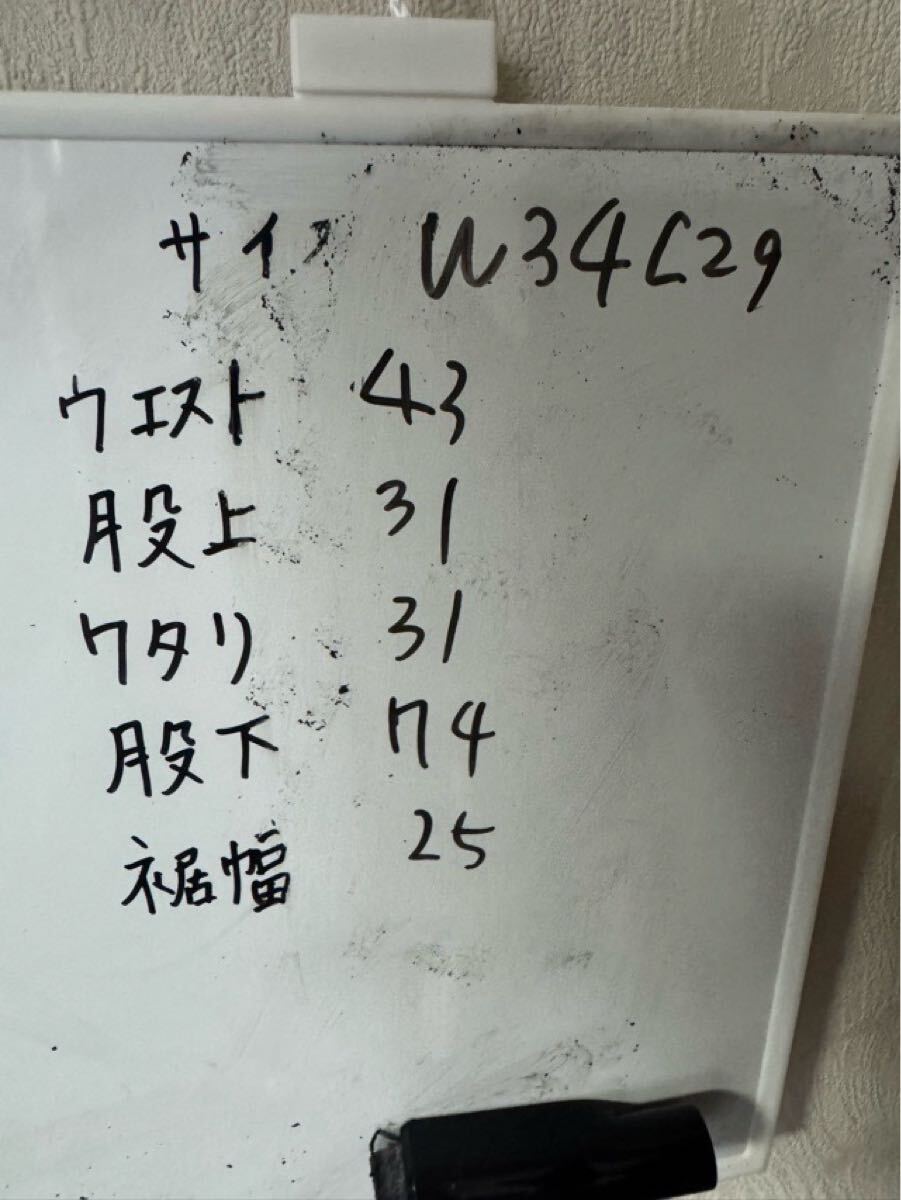 サイズ W34L29
ウエスト 43
股上 31
ワタリ 31
股下 74
裾幅 25